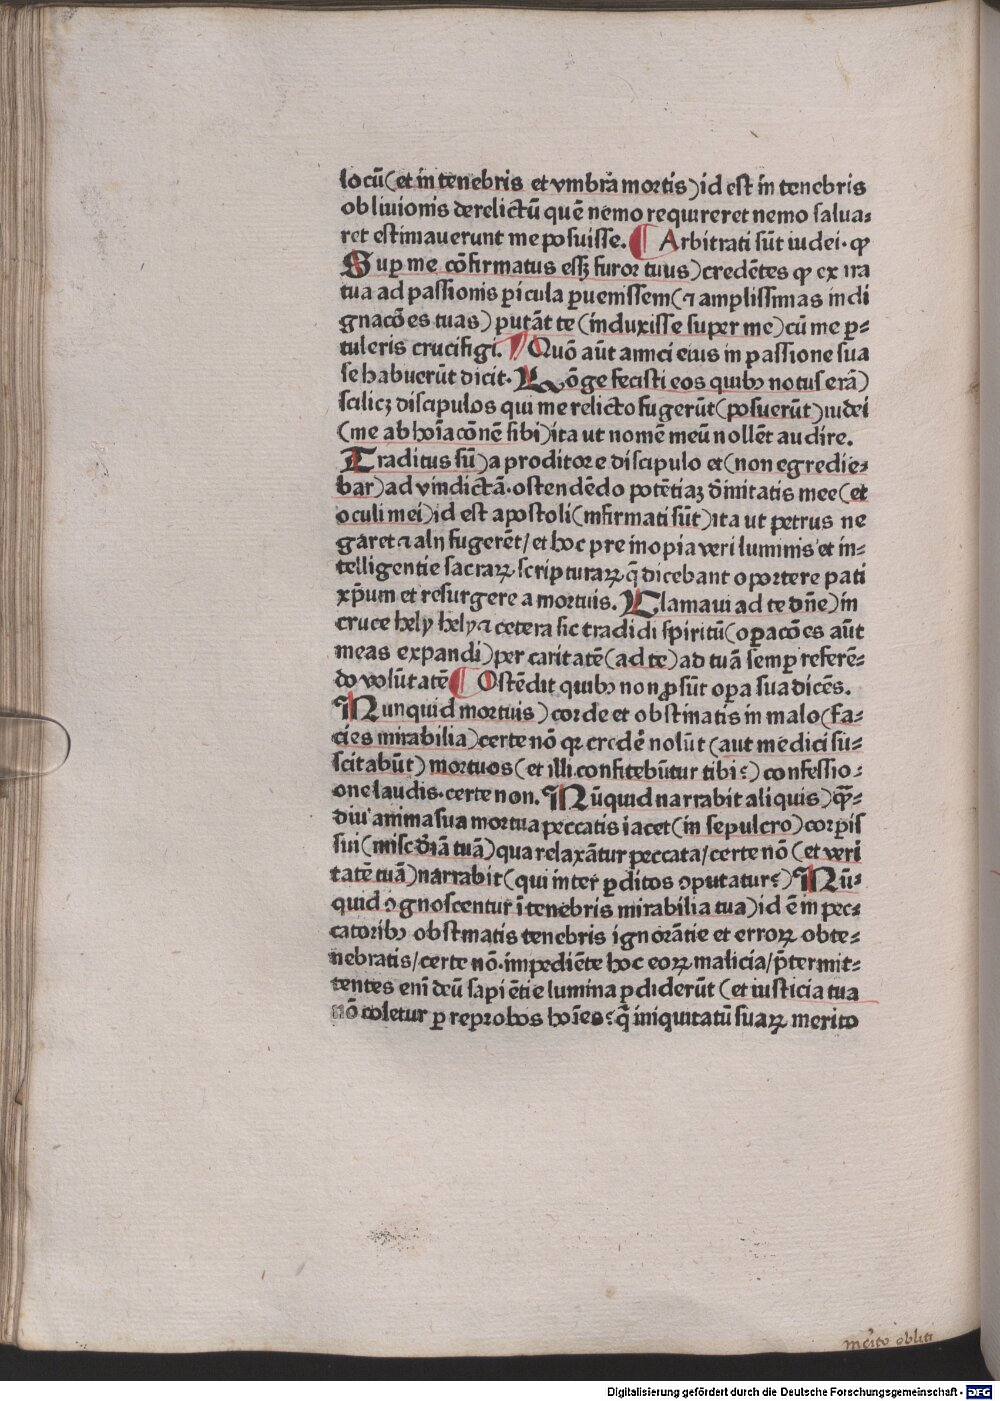 locū(et in tenebris et vmbra mortis)id est in tenebris
obliuionis derelictū quē nemo requireret nemo salua⸗
ret estimauerunt me posuisse. ¶ Arbitrati sūt iudei· ꝙ
Suꝑ me cōfirmatus essꝫ furor tuus)credētes ꝙ ex ira
tua ad passionis ꝑicula ꝑuenissem(⁊ amplissimas indi
gnacōes tuas)putāt te(induxisse super me)cū me ꝑ⸗
tuleris crucifigi. ¶ Quō aūt amici eius in passione sua
se habuerūt dicit· Lōge fecisti eos quibꝰ notus erā)
scilicꝫ discipulos qui me relicto fugerūt(posuerūt)iudei
(me abhoīacōnē sibi)ita ut nomē meū nollēt audire.
Traditus sū)a proditore discipulo et(non egredie⸗
bar)ad vindictā·ostendēdo potētiaꝫ diuītatis mee(et
oculi mei)id est apostoli(infirmati sūt)ita ut petrus ne
garet ⁊ alij fugerēt/et hoc pre inopia veri luminis et in⸗
telligentie sacraꝝ·scripturaꝝ q̄ dicebant oportere pati
xp̄um et resurgere a mortuis. Clamaui ad te dn̄e)in
cruce hely hely ⁊ cetera sic tradidi spiritū(oꝑacōes aūt
meas expandi)per caritatē(ad te)ad tuā semꝑ referē⸗
do volūtatē ¶ Ostēdit quibꝰ non ꝓsūt oꝑa sua dicēs.
Nunquid mortuis)corde et obstinatis in malo(fa⸗
cies mirabilia)certe nō qꝛ credē nolūt(aut medici su⸗
scitabūt)mortuos(et illi.confitebūtur tibi?)confessio⸗
one laudis·certe non. Nūquid narrabit aliquis)qȝ̄⸗
diu anima sua mortua peccatis iacet(in sepulcro)corꝑis
sui(misc̄diā tuā)qua relaxātur peccata/certe nō(et veri
tatē tuā)narrabit(qui inter ꝑditos ꝯputatur?)Nū⸗
quid ꝯgnoscentur ī tenebris mirabilia tua)id ē in pec⸗
catoribꝰ obstinatis tenebris ignorātie et erroꝝ obte⸗
nebratis/certe nō·impediēte hoc eoꝝ malicia/p̄termit⸗
tentes eni deū sapiētie lumina ꝑdiderūt(et iusticia tua
nō toletur ꝑ reprobos hoīes?q̄ iniquitatū suaꝝ merito
merito obliti
Digitalisierung gefördert durch die Deutsche Forschungsgemeinschaft - DFG